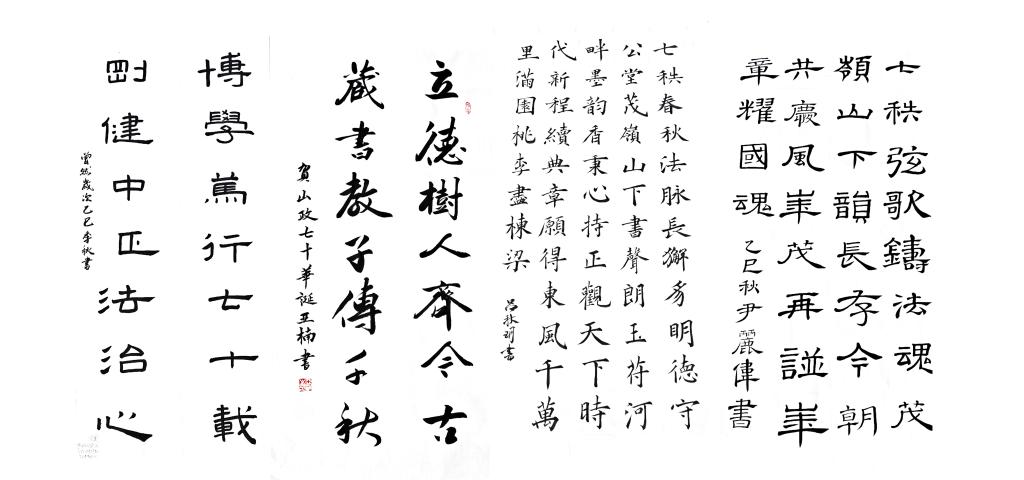 七秩弦歌鑄法魂茂
嶺山下韻長存今朝
共慶風華茂再譜華
章耀國魂 乙巳秋尹麗偉書
七秩春秋法脉長獬豸明德守
公堂茂嶺山下書聲朗玉苻河
畔墨韵香秉心持正觀天下時
代新程續典章願得東風千萬
里滿園桃李盡棟梁
呂 玥書
立德樹人齊今古
藏書教子傳千秋
賀山政七十華誕亞楠書
博學篤行七十載
剛健中正法治心
曾然歲次乙巳季秋書